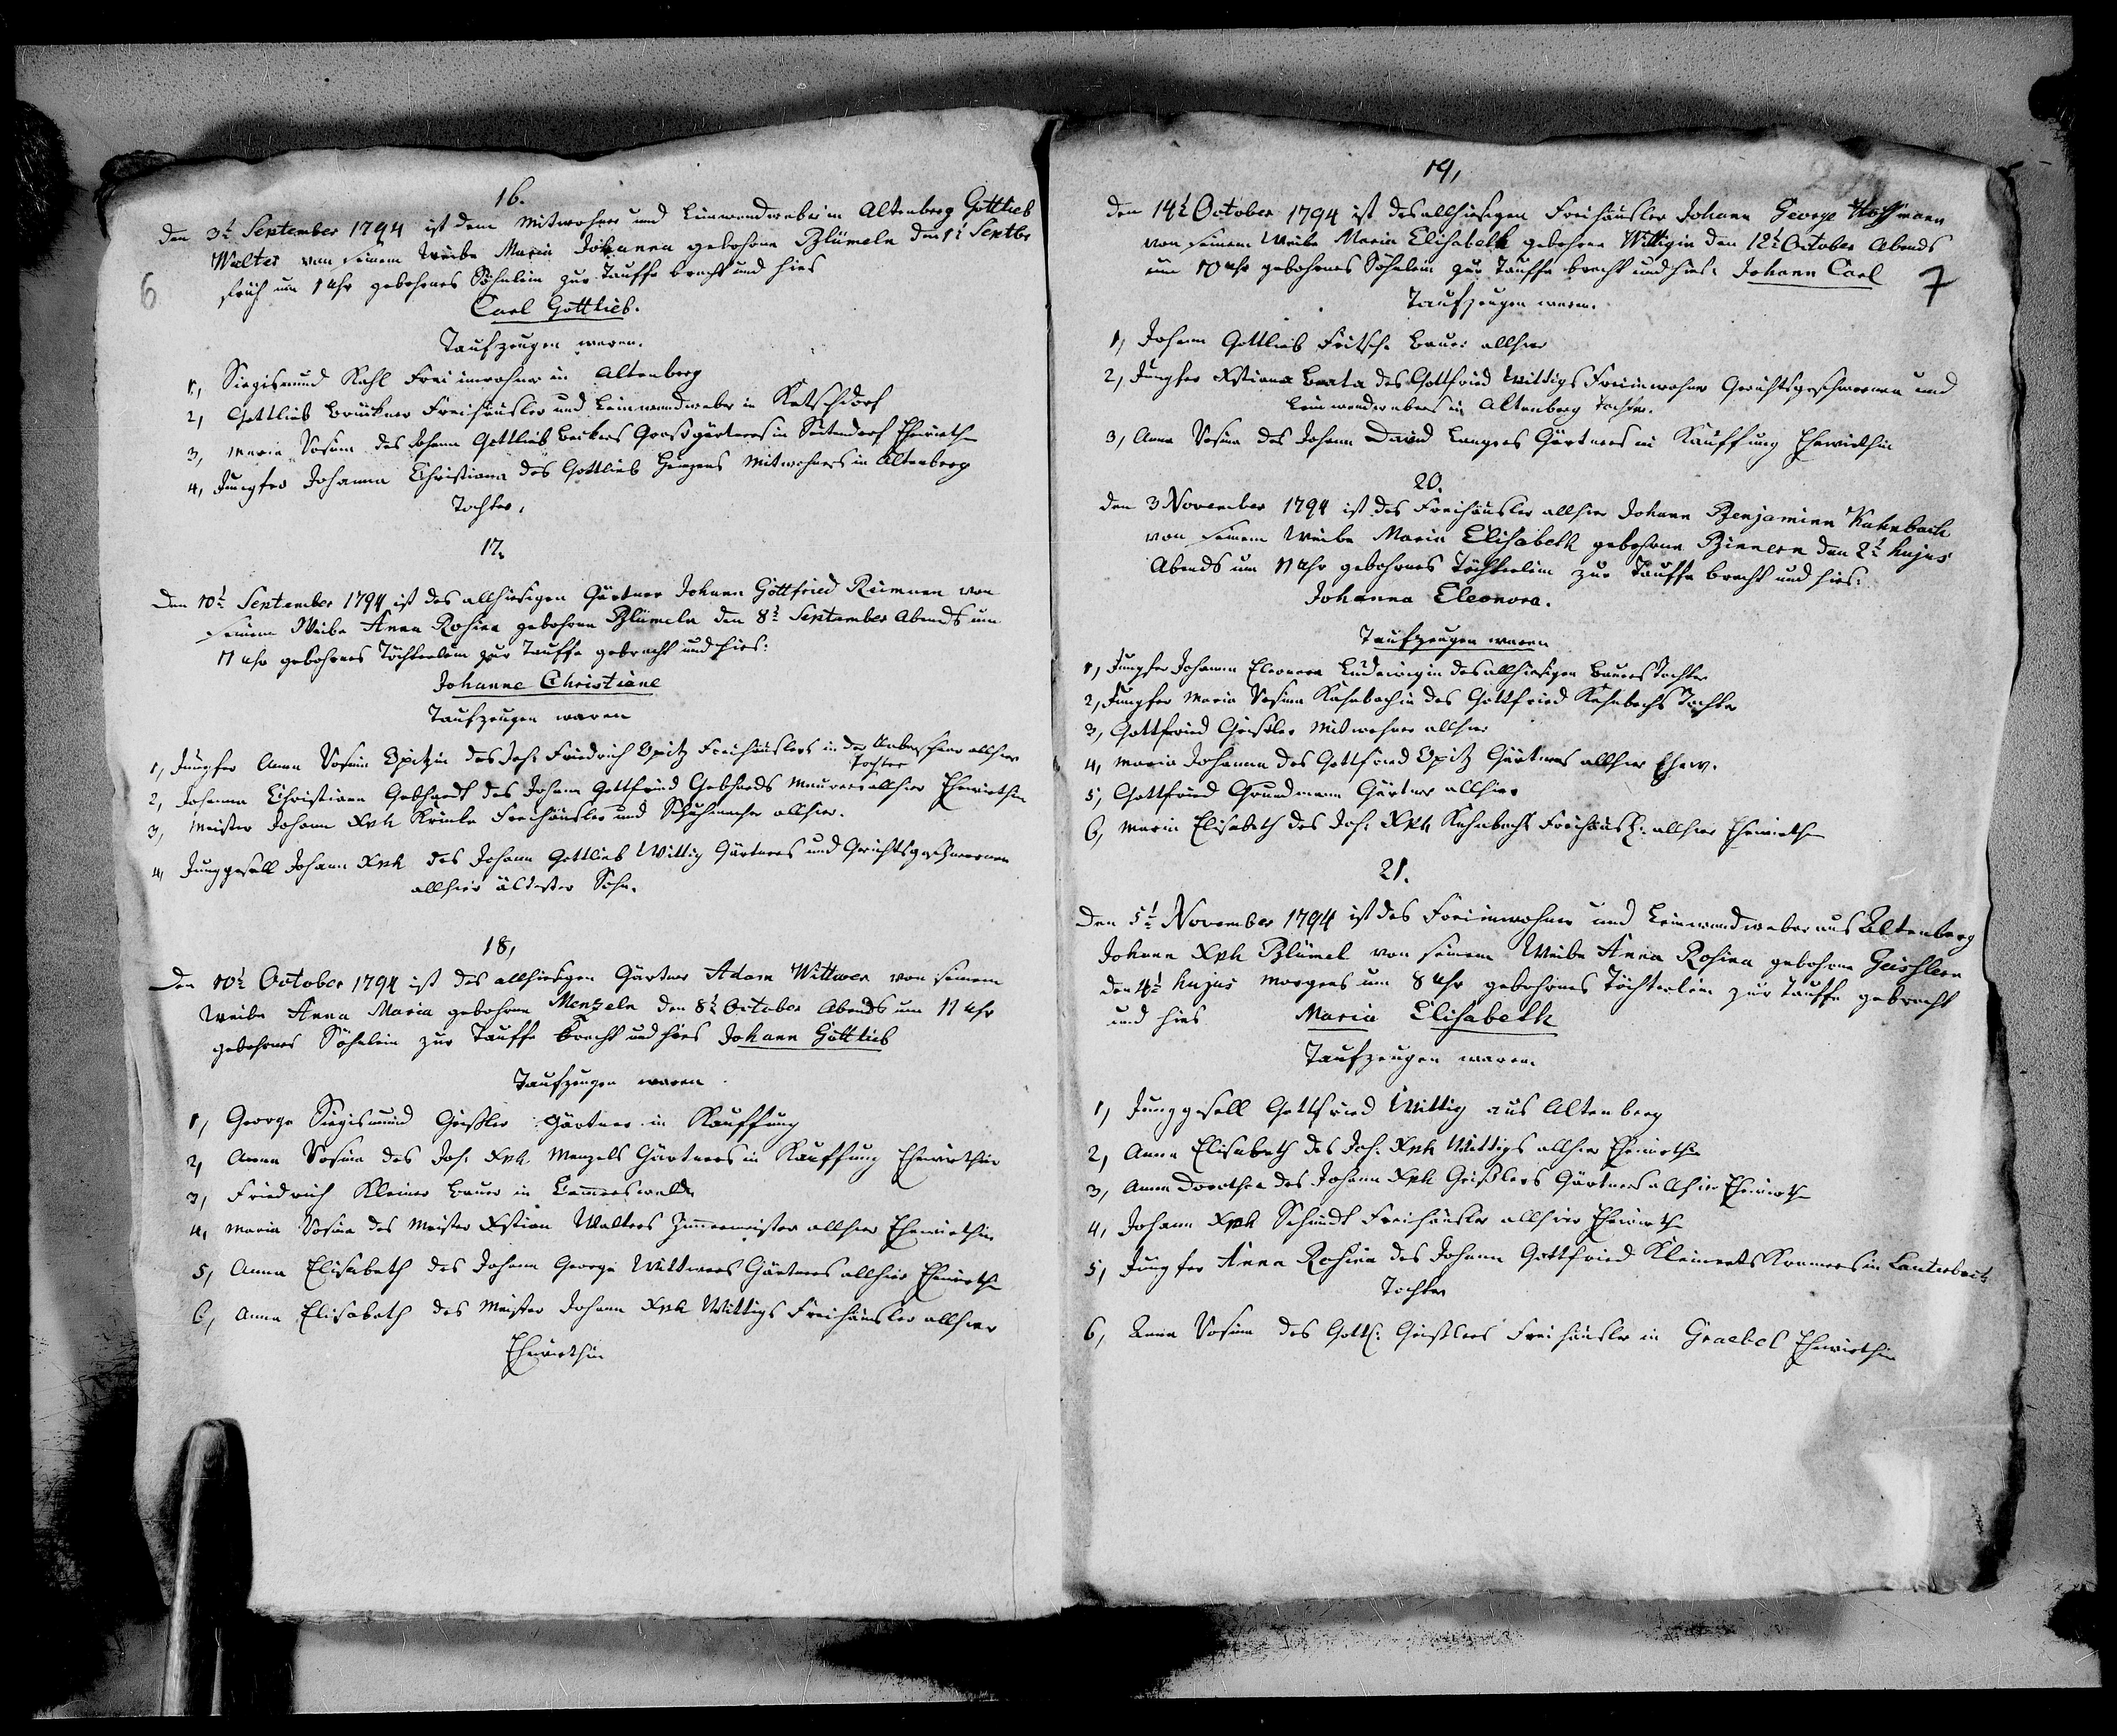 6
16.
Den 3t September 1794 ist dem Mitwohner und Leinwandweber in Altenberg Gottlieb
Walter von seinem Weibe Maria Johanna gebohrne Blümeln den 1t Septbr
früh um 1 Uhr gebohrnes Söhnlein zur Tauffe bracht und hies
Carl Gottlieb.
Taufzeugen waren.
1, Siegismund Kahl Freiinwohner in Altenberg
2, Gottlieb Brückner Freihäusler und Leinwandweber in Ketschdorf
3, Maria Rosina des Johann Gottlieb Beckers Grosgärtners in Seitendorf Ehewirthin
4, Jungfer Johanna Christiana des Gottlieb Mitwohners in Altenberg
Tochter.
17.
Den 10t September 1794 ist des allhiesigen Gärtner Johann Gottfried Reimnen von
seinem Weibe Anna Rosina gebohrne Blümeln den 8t September Abends um
11 Uhr gebohrnes Töchterlein zur Tauffe gebracht und hies:
Johanne Christiane
Taufzeugen waren
1, Jungfer Anna Rosina Opitzin des Joh: Friedrich Opitz Freihäuslers in der allhier
Tochter
2, Johanna Christiana Gebhardt des Johann Gottfried Gebhards Maurers allhier Ehewirthin
3, Meister Johann Xph Freihäusler und Schuhmacher allhier.
4, Junggesell Johann Xph des Johann Gottlieb Wittig Gärtners und Gerichtsgeschwornen
allhier ältester Sohn.
18,
Den 10t October 1794 ist des allhiesigen Gärtner Adam Wittwer von seinem
Weibe Anna Maria gebohrne Menzeln den 8t October Abends um 11 Uhr
gebohrnes Söhnlein zur Tauffe bracht und hies Johann Gottlieb
Taufzeugen waren
1, George Siegismund Geißler Gärtner in Kauffung
2, Anna Rosina des Joh: Xph Menzels Gärtners in Kauffung Ehewirthin
3, Friedrich Kleiner Bauer in
4, Maria Rosina des Meister Xstian Walters Zimmermeister allhier Ehewirthin
5, Anna Elisabeth des Johann George Wittwers Gärtners allhier Ehewirthin
6, Anna Elisabeth des Meister Johann Xph Wittigs Freihäusler allhier
Ehewirthin
7
19,
Den 14t October 1794 ist des allhiesigen Freihäusler Johann George Hoffmann
von seinem Weibe Maria Elisabeth gebohrne Wittigin den 12t October Abends
um 10 Uhr gebohrnes Söhnlein zur Tauffe bracht und hies: Johann Carl
Taufzeugen waren.
1, Johann Gottlieb Fritsche Bauer allhier
2, Jungfer Xstiana Beata des Gottfried Wittigs Freiinwohner Gerichtsgeschwornen und
Leinwandwebers in Altenberg Tochter.
3, Anna Rosina des Johann David Langers Gärtners in Kauffung Ehewirthin
20.
Den 3 November 1794 ist des Freihäusler allhier Johann Benjaminn Kuhnbach
von seinem Weibe Maria Elisabeth gebohrne Binnern den 2t hujus
Abends um 11 Uhr gebohrnes Töchterlein zur Tauffe bracht und hies:
Johanna Eleonora.
Taufzeugen waren
1, Jungfer Johanna Eleonora Ludewigin des allhiesigen Bauers Tochter
2, Jungfer Maria Rosina Kuhnbachin des Gottfried Kuhnbachs Tochter
3, Gottfried Geißler Mitwohner allhier
4, Maria Johanna des Gottfried Opitz Gärtners allhier Ehew.
5, Gottfried Grundmann Gärtner allhier
6, Maria Elisabeth des Joh: Xph Kuhnbachs Freihäusl: allhier Ehewirthin
21.
Den 5t November 1794 ist des Freiinwohner und Leinwandweber aus Altenberg
Johann Xph Blümel von seinem Weibe Anna Rosina gebohrne Geishlern
den 4t hujus Morgens um 8 Uhr gebohrnes Töchterlein zur Tauffe gebracht
und hies Maria Elisabeth
Taufzeugen waren.
1, Junggesell Gottfried Wittig aus Altenberg
2, Anna Elisabeth des Joh. Xph Wittigs allhier Ehewirthin
3, Anna Dorothea des Johann Xph Geißlers Gärtners allhier Ehewirthin
4, Johann Xph Schmidt Freihäusler allhier Ehewirth
5, Jungfer Anna Rosina des Johann Gottfried Kleinerts Kramers in Lauterbach
Tochter
6, Anna Rosina des Gottf: Geißlers Freihäusler in Graebel Ehewirthin